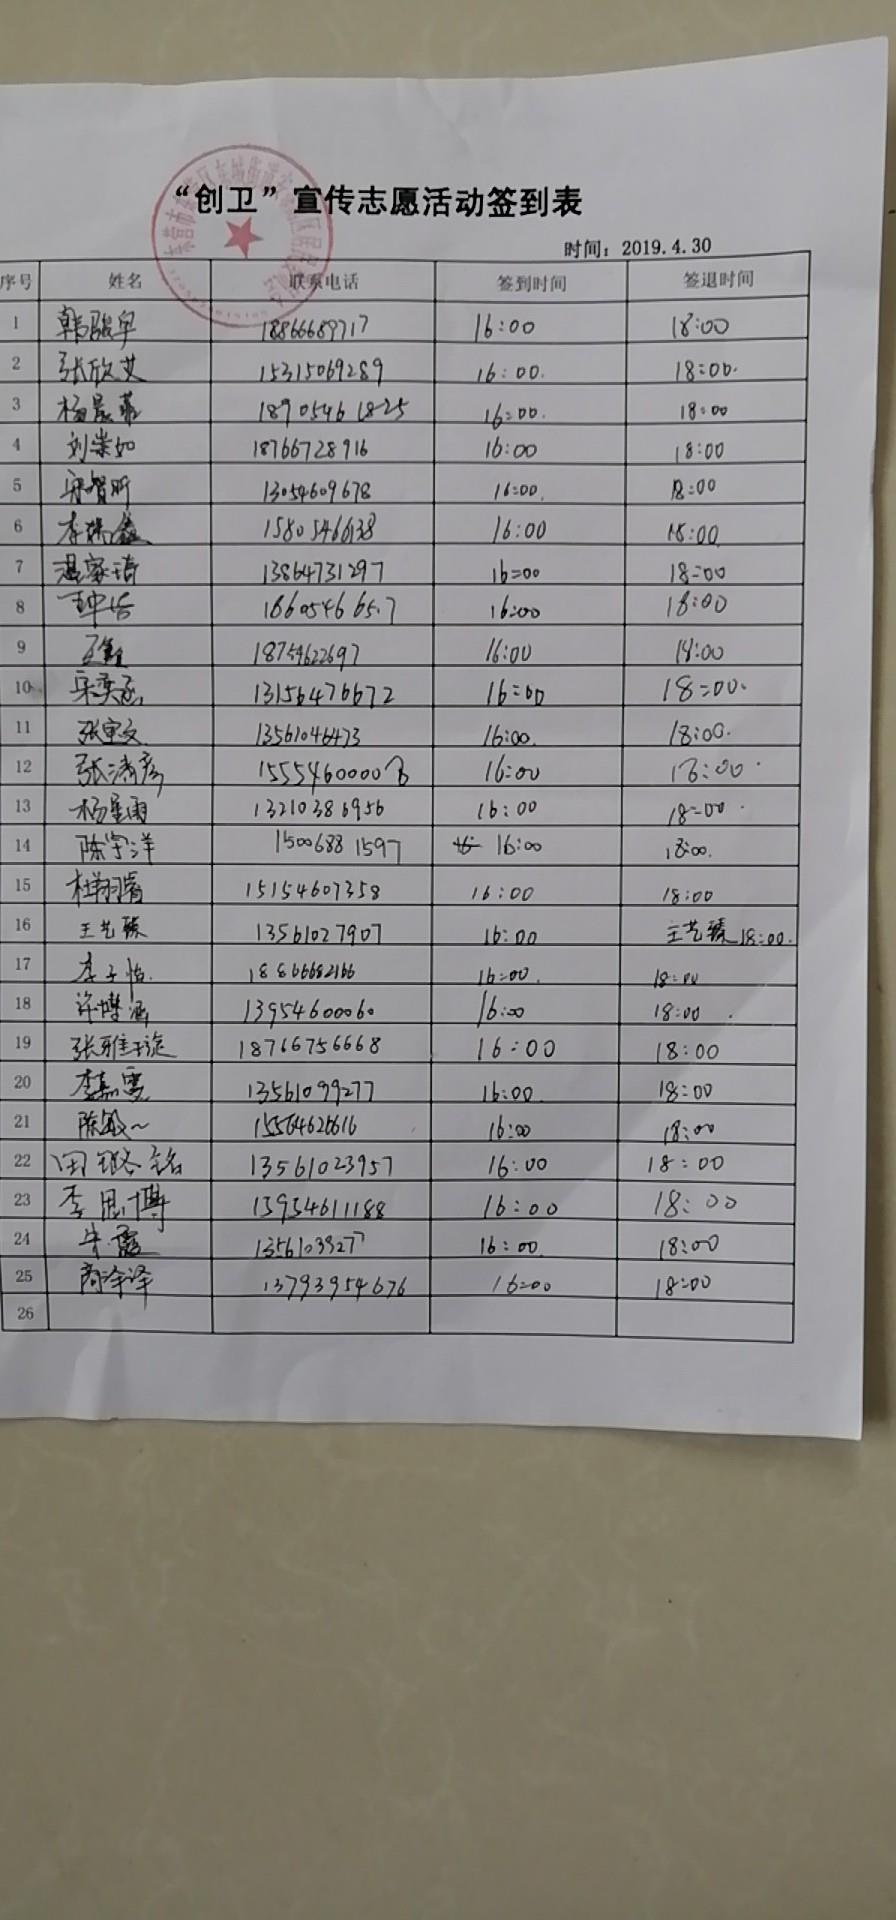 “创卫”宣传志愿活动签到表
时间：2019.4.30
序号 姓名 联系电话 签到时间 签退时间
1 韩骏宇 18866689717 16:00 18:00
2 张欣艾 15315069289 16:00. 18:00.
3 杨晨 18905461825 16:00. 18:00
4 刘崇如 18766728916 16:00 18:00
5 13054609678 16:00. 18:00
6 李瑞鑫 1580546638 16:00 18:00
7 温家琦 13864731297 16:00 18:00
8 16:00 18:00
9 18754622697 16:00 18:00
10 宋奕 13156476672 16:00 18:00.
11 张宝文 13561046473 16:00. 18:00.
12 张清彦 16:00 18:00
13 杨星雨 13210386956 16:00 18:00
14 陈宇洋 15006881597 16:00 18:00.
15 杜翔睿 15154607358 16:00 18:00
16 王艺臻 13561027907 16:00 王艺臻 18:00.
17 李子怡. 18866682166 16:00. 18:00
18 许博涵 13954600060 16:00 18:00
19 张雅璇 18766756668 16:00 18:00
20 李嘉雯 13561099277 16:00 18:00
21 陈敏 15564626616 16:00 18:00
22 田璐铭 13561023957 16:00 18:00
23 李思博 13954611188 16:00 18:00
24 朱霞 16:00 18:00
25 商泽 13793954676 16:00 18:00
26